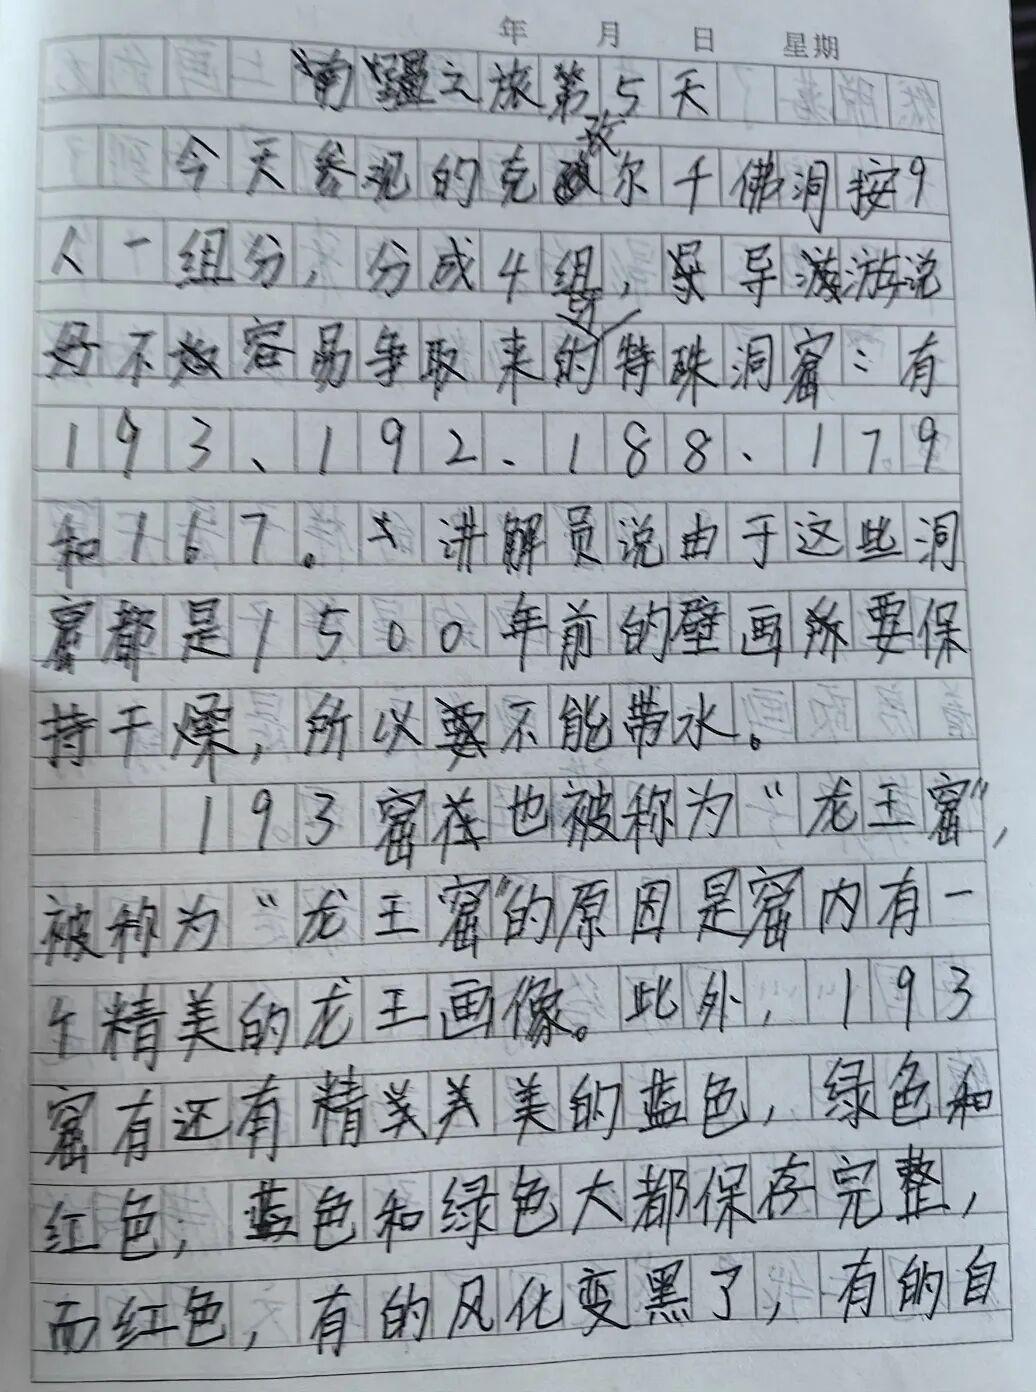 年 月 日 星期
南疆之旅第5天
今天参观的克孜尔千佛洞按9
人一组分，分成4组，导游说
好不容易争取来的特殊洞窟：有
193、192、188、179
和167。讲解员说由于这些洞
窟都是1500年前的壁画所要保
持干燥，所以不能带水。
193窟也被称为“龙王窟”，
被称为“龙王窟”的原因是窟内有一
个精美的龙王画像。此外，193
窟有还有精美的蓝色，绿色和
红色，蓝色和绿色大都保存完整，
而红色，有的风化变黑了，有的自